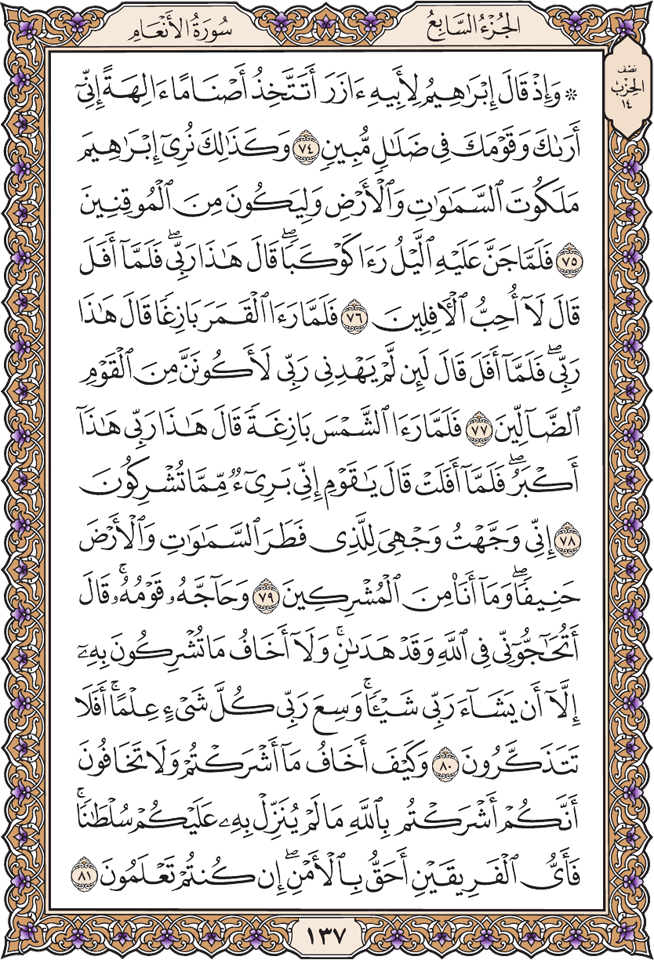 الجزء السابع
سورة الأنعام
نصف
الحزب
١٤
۞ وَإِذْ قَالَ إِبْرَٰهِيمُ لِأَبِيهِ ءَازَرَ أَتَتَّخِذُ أَصْنَامًا ءَالِهَةً إِنِّىٓ
أَرَىٰكَ وَقَوْمَكَ فِى ضَلَٰلٍ مُّبِينٍ ٧٤ وَكَذَٰلِكَ نُرِىٓ إِبْرَٰهِيمَ
مَلَكُوتَ ٱلسَّمَٰوَٰتِ وَٱلْأَرْضِ وَلِيَكُونَ مِنَ ٱلْمُوقِنِينَ
٧٥ فَلَمَّا جَنَّ عَلَيْهِ ٱلَّيْلُ رَءَا كَوْكَبًا ۖ قَالَ هَٰذَا رَبِّى ۖ فَلَمَّآ أَفَلَ
قَالَ لَآ أُحِبُّ ٱلْءَافِلِينَ ٧٦ فَلَمَّا رَءَا ٱلْقَمَرَ بَازِغًا قَالَ هَٰذَا
رَبِّى ۖ فَلَمَّآ أَفَلَ قَالَ لَئِن لَّمْ يَهْدِنِى رَبِّى لَأَكُونَنَّ مِنَ ٱلْقَوْمِ
ٱلضَّآلِّينَ ٧٧ فَلَمَّا رَءَا ٱلشَّمْسَ بَازِغَةً قَالَ هَٰذَا رَبِّى هَٰذَآ
أَكْبَرُ ۖ فَلَمَّآ أَفَلَتْ قَالَ يَٰقَوْمِ إِنِّى بَرِىٓءٌ مِّمَّا تُشْرِكُونَ
٧٨ إِنِّى وَجَّهْتُ وَجْهِىَ لِلَّذِى فَطَرَ ٱلسَّمَٰوَٰتِ وَٱلْأَرْضَ
حَنِيفًا ۖ وَمَآ أَنَا۠ مِنَ ٱلْمُشْرِكِينَ ٧٩ وَحَآجَّهُۥ قَوْمُهُۥ ۚ قَالَ
أَتُحَٰٓجُّوٓنِّى فِى ٱللَّهِ وَقَدْ هَدَىٰنِ ۚ وَلَآ أَخَافُ مَا تُشْرِكُونَ بِهِۦٓ
إِلَّآ أَن يَشَآءَ رَبِّى شَيْـًٔا ۗ وَسِعَ رَبِّى كُلَّ شَىْءٍ عِلْمًا ۗ أَفَلَا
تَتَذَكَّرُونَ ٨٠ وَكَيْفَ أَخَافُ مَآ أَشْرَكْتُمْ وَلَا تَخَافُونَ
أَنَّكُمْ أَشْرَكْتُم بِٱللَّهِ مَا لَمْ يُنَزِّلْ بِهِۦ عَلَيْكُمْ سُلْطَٰنًا ۚ
فَأَىُّ ٱلْفَرِيقَيْنِ أَحَقُّ بِٱلْأَمْنِ ۖ إِن كُنتُمْ تَعْلَمُونَ ٨١
١٣٧